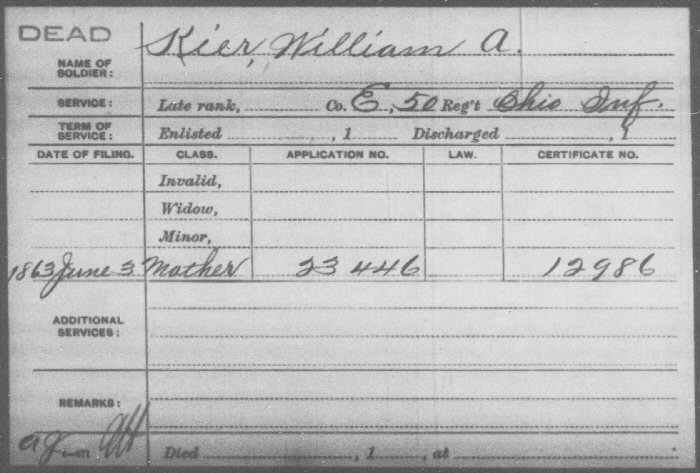 DEAD
Kier, William A.
NAME OF
SOLDIER:
SERVICE: Late rank, Co. E, 50 Reg't Ohio Inf.
TERM OF
SERVICE: Enlisted , 1 Discharged , 1
DATE OF FILING. CLASS. APPLICATION NO. LAW. CERTIFICATE NO.
Invalid,
Widow,
Minor,
1863 June 3. Mother 23 446 12986
ADDITIONAL
SERVICES:
REMARKS:
Died , 1 , at